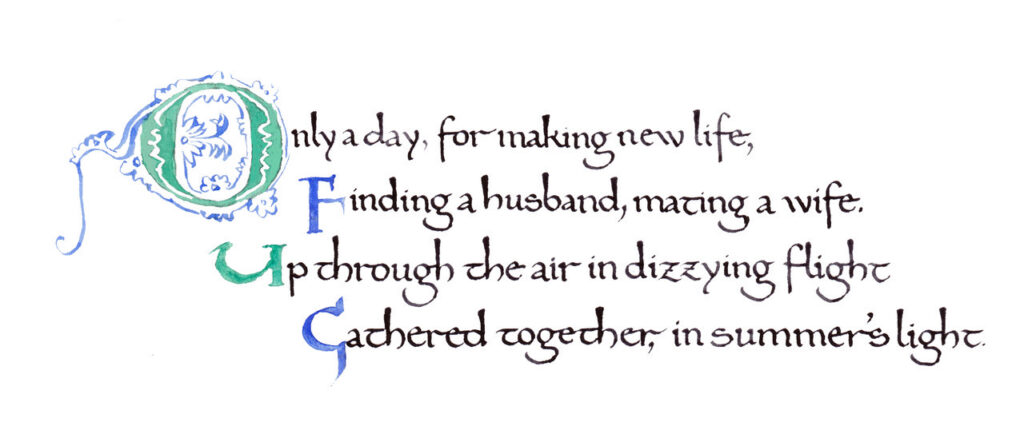 Only a day, for making new life,
Finding a husband, mating a wife.
Up through the air in dizzying flight
Gathered together, in summer's light.